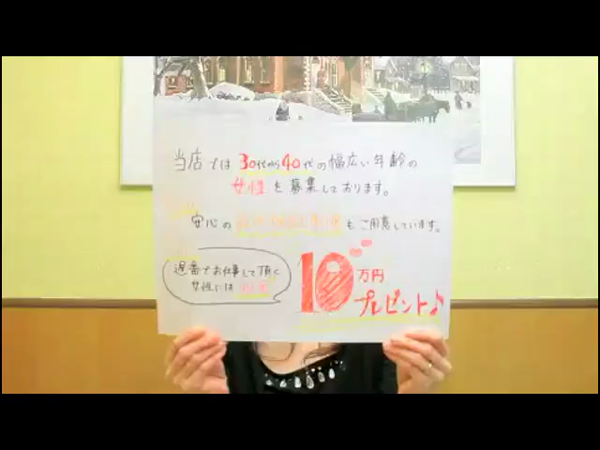 当店では30代から40代の幅広い年齢の
女性を募集しております。
安心の もご用意しています。
遅番でお仕事して頂く
女性には
10万円
プレゼント♪